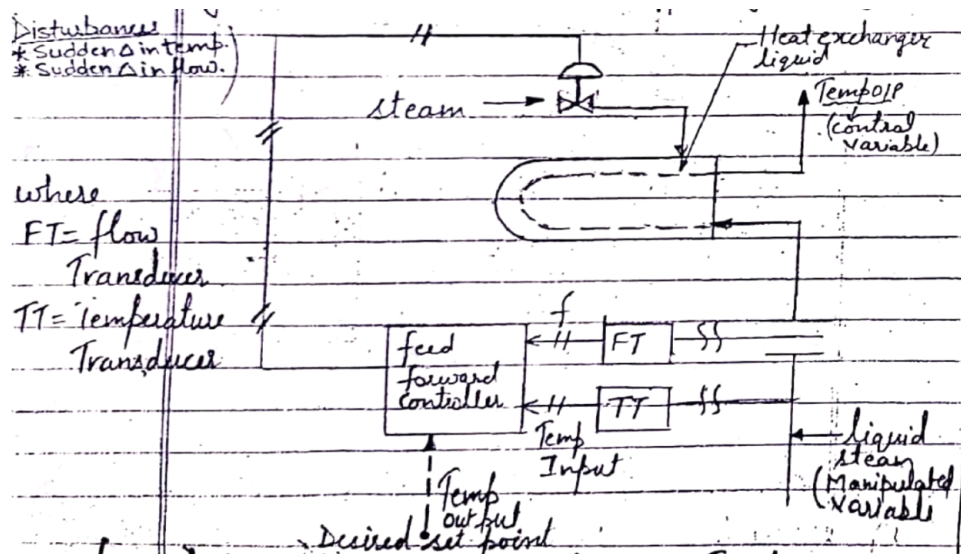 Disturbances
* Sudden Δ in temp.
* Sudden Δ in flow.
steam
Heat exchanger
liquid
Temp O/P
(control
variable)
where
FT = flow
Transducer
TT = Temperature
Transducer
f
feed
forward
controller
FT
TT
Temp
Input
liquid
steam
(Manipulated
variable
Temp
output
Desired set point